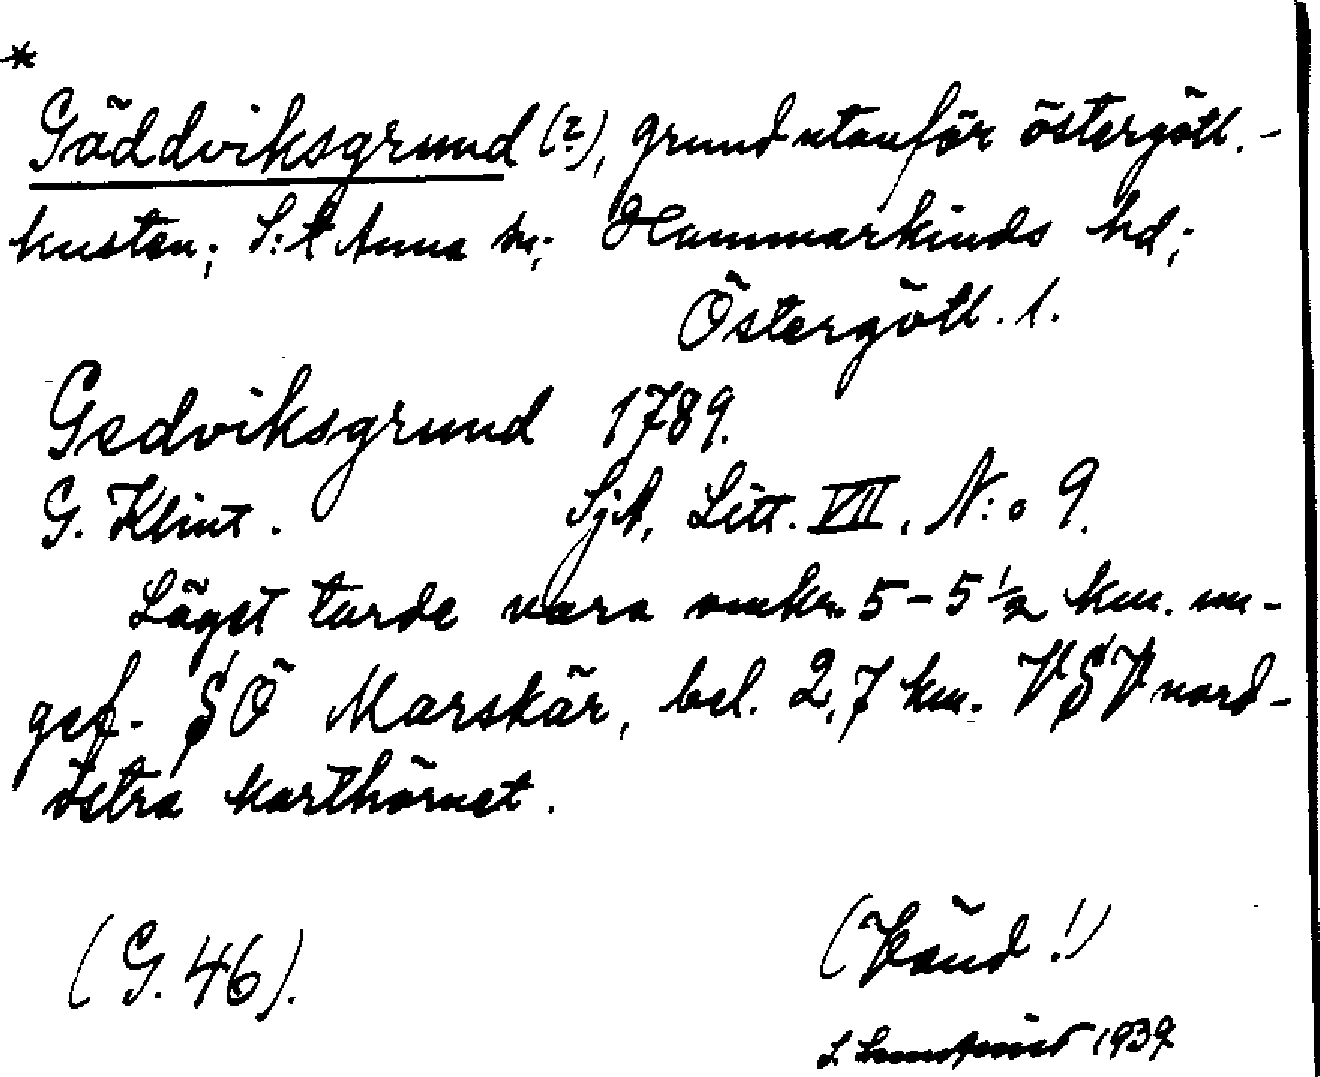 *
Gäddviksgrund (?), grund utanför östergötl.-
kusten; S:t Anna sn; Hammarkinds hd;
Östergötl. l.
Gedviksgrund 1789.
G. Klint. SjA, Litt. VII, N:o 9.
Läget torde vara omkr. 5-5½ km. un-
gef. SÖ Marskär, bel. 2,7 km. VSV nord-
östra karthörnet.
(G. 46). (Känd!)
1939